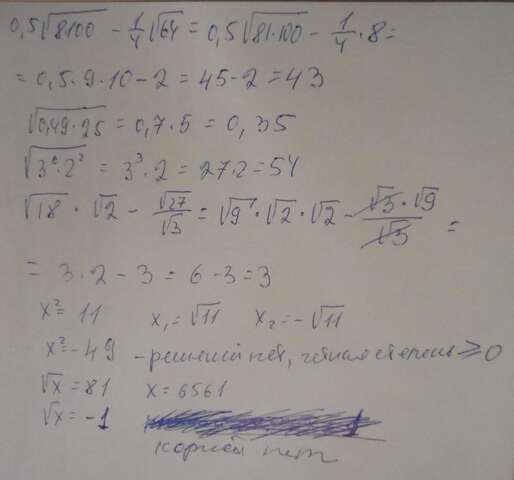 0,5√8100 - 1/4√64 = 0,5√81·100 - 1/4·8 =
= 0,5·9·10-2 = 45-2 = 43
√0,49·25 = 0,7·5 = 0,35
√3⁶·2² = 3³·2 = 27·2=54
√18·√2 - √27/√3 = √9·√2·√2 - √3·√9/√3 =
= 3·2-3 = 6-3=3
x²= 11 x₁=√11 x₂=-√11
x²=-49 -решений нет, чётная степень ≥0
√x = 81 x = 6561
√x = -1
корней нет